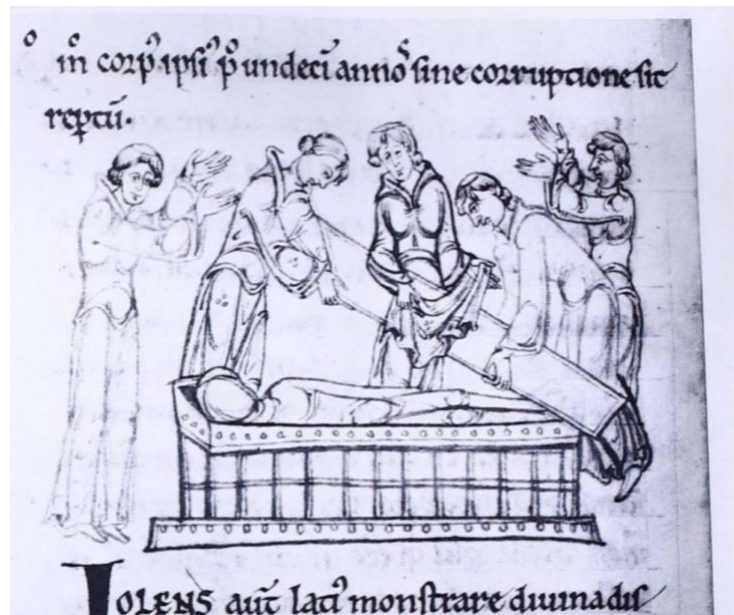 Qm̊ corp᾿ ipsi᾿ p᾿ undeci annoꝝ sine corruptione sit
reptū.
VOLENS aut̄ laci᾿ monstrare divina dis